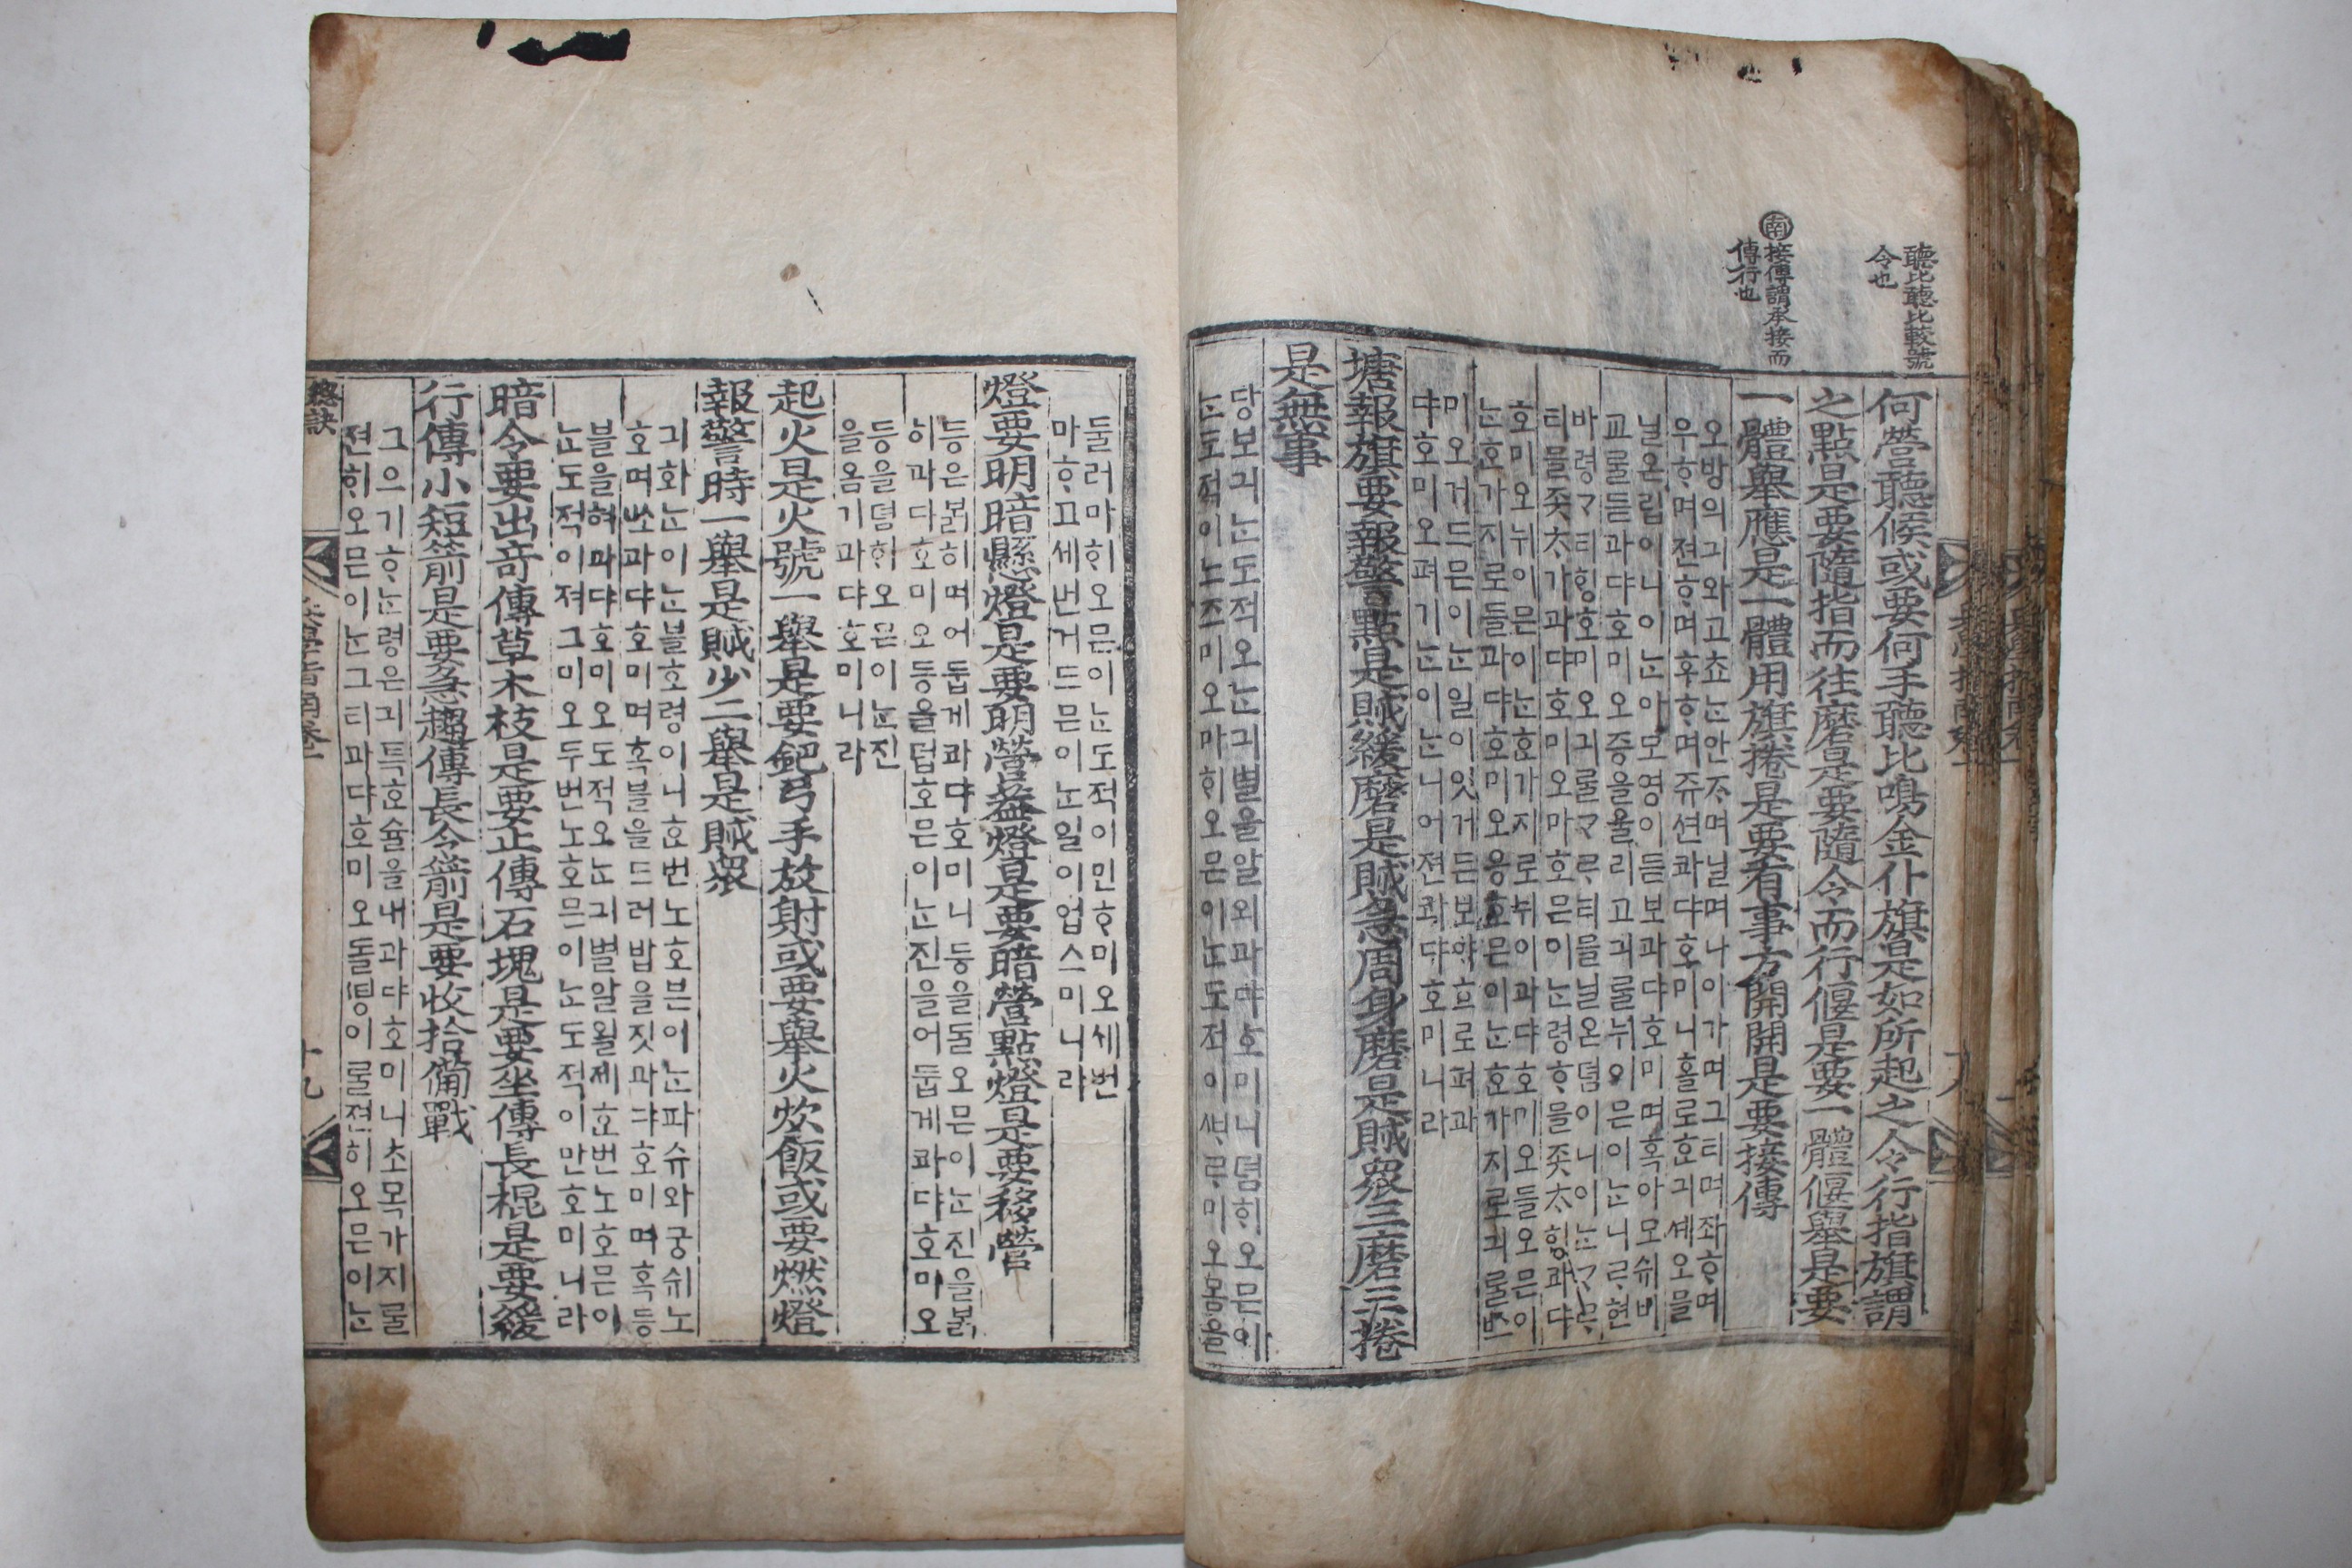 聽比聽比較號
令也
南接傳謂承接而
傳行也
何營聽候或要何手聽比鳴金仆旗是如所起之令行指旗謂
之點是要隨指而往磨是要隨令而行偃是要一體偃擧是要
一體擧應是一體用旗捲是要看事方開開是要接傳
오방의그와고쵸ᄂᆞᆫ안ᄌᆞ며닐며나이가며그티며좌ᄒᆞ며
우ᄒᆞ며젼ᄒᆞ며후ᄒᆞ며쥬션콰댜호미니홀로호긔셰오믈
닐온립이니이ᄂᆞᆫ아모영이듣보과댜호미며혹아모쉬비
교ᄅᆞᆯ듣과댜호미오증을울리고긔ᄅᆞᆯ뉘이믄이ᄂᆞᆫ니ᄅᆞ현
바령ᄀᆞ티ᄒᆡᆼ호미오긔ᄅᆞᆯᄀᆞᄅᆞ티믈닐온뎜이니이ᄂᆞᆫᄀᆞᄅᆞ
티믈조차가과댜호미오마호믄이ᄂᆞᆫ령ᄒᆞ믈조차ᄒᆡᆼ과댜
호미오뉘이믄이ᄂᆞᆫᄒᆞᆫ가지로뉘이과댜호미오들오믄이
ᄂᆞᆫᄒᆞᆫ가지로들과댜호미오응호믄이ᄂᆞᆫᄒᆞᆫ가지로긔ᄅᆞᆯᄡᅳ
미오거드믄이ᄂᆞᆫ일이잇거든보야흐로펴과
댜호미오펴기ᄂᆞᆫ이ᄂᆞᆫ니어젼콰댜호미니라
塘報旗要報警點是賊緩磨是賊急周身磨是賊衆三磨三捲
是無事
당보긔ᄂᆞᆫ도적오ᄂᆞᆫ긔별을알외과댜호미니뎜히오믄이
ᄂᆞᆫ도적이느즈미오마히오믄이ᄂᆞᆫ도적이ᄲᆞᄅᆞ미오몸을
둘러마히오믄이ᄂᆞᆫ도적이만호미오세번
마ᄒᆞ고세번거드믄이ᄂᆞᆫ일이업스미니라
燈要明暗懸燈是要明營盖燈是要暗營點燈是要移營
등은ᄇᆞᆰ히며어둡게콰댜호미니등을ᄃᆞᆯ오믄이ᄂᆞᆫ진을ᄇᆞᆰ
히과댜호미오등을덥호믄이ᄂᆞᆫ진을어둡게콰댜호미오
등을뎜히오믄이ᄂᆞᆫ진
을옴기과댜호미니라
起火是火號一擧是要鈀弓手放射或要擧火炊飯或要燃燈
報警時一擧是賊少二擧是賊衆
긔화ᄂᆞᆫ이ᄂᆞᆫ블호령이니ᄒᆞᆫ번노호믄이ᄂᆞᆫ파슈와궁쉬노
호며ᄡᅩ과댜호미며혹블을드러밥을짓과댜호미며혹등
블을혀과댜호미오도적오ᄂᆞᆫ긔별알욀제ᄒᆞᆫ번노호믄이
ᄂᆞᆫ도적이져그미오두번노호믄이ᄂᆞᆫ도적이만호미니라
暗令要出奇傳草木枝是要止傳石塊是要坐傳長棍是要緩
行傳小短箭是要急趨傳長令箭是要收拾備戰
그으기ᄒᆞᄂᆞᆫ령은긔특ᄒᆞᆫ슐을내과댜호미니초목가지ᄅᆞᆯ
젼히오믄이ᄂᆞᆫ그티과댜호미오돌덩이ᄅᆞᆯ젼히오믄이ᄂᆞᆫ
總訣
兵學指南卷一
十九